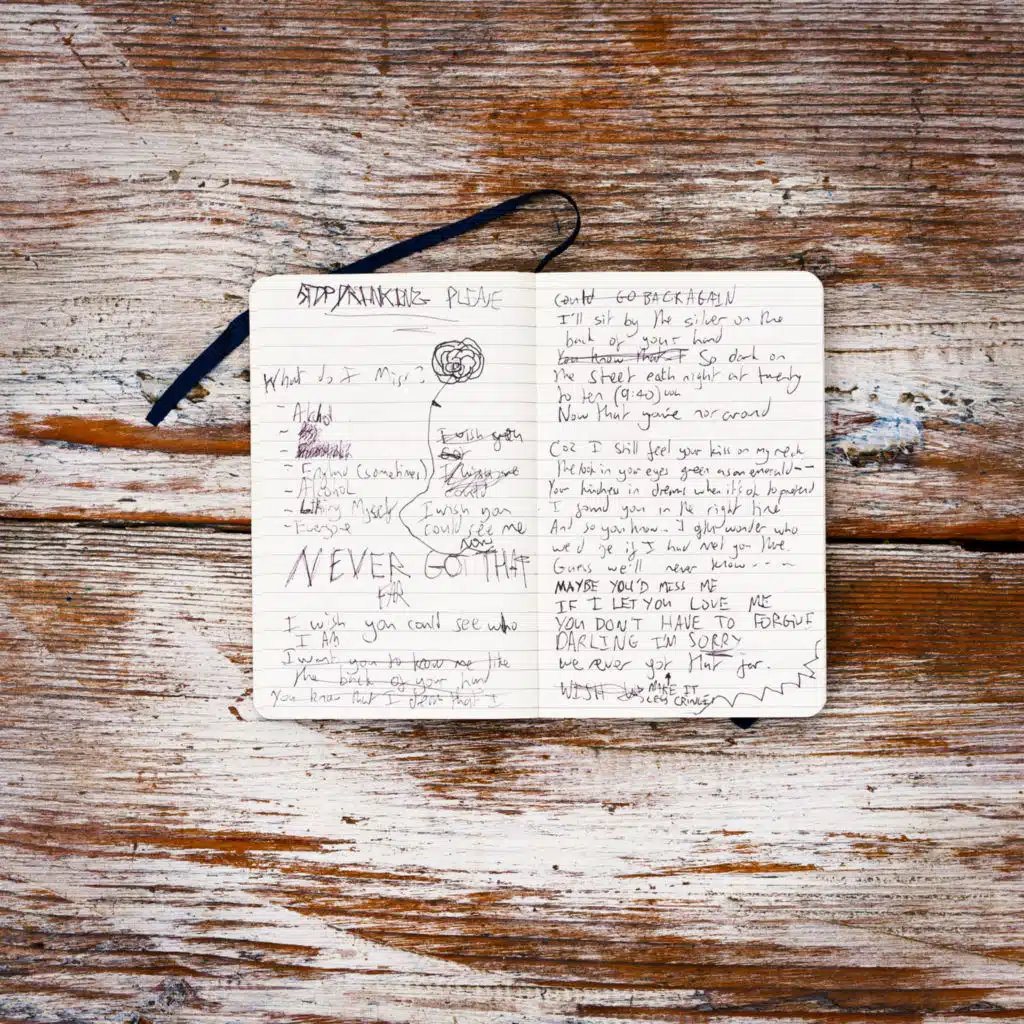 STOP DRINKING PLEASE
What do I Miss?
- Alcohol
-
-
- England (sometimes)
- Alcohol
- Myself
- Everyone
I wish you
I wish you
could see me
now
NEVER GOT THAT
FAR
I wish you could see who
I AM
I want you to know me like
the back of your hand
You know that I that I
could GO BACK AGAIN
I'll sit by the silver on the
back of your hand
You know that I So dark on
the street each night at twenty
to ten (9:40)
Now that you're not around
Coz I still feel your kiss on my neck
The look in your eyes green as an emerald --
Your kindness in dreams when it's ok to pretend
I found you in the right time
And so you know. I often wonder who
we'd be if I had met you then.
Guess we'll never know - - -
MAYBE YOU'D MISS ME
IF I LET YOU LOVE ME
YOU DON'T HAVE TO FORGIVE
DARLING I'M SORRY
we never got that far.
WISH MAKE IT
LESS CRINGE